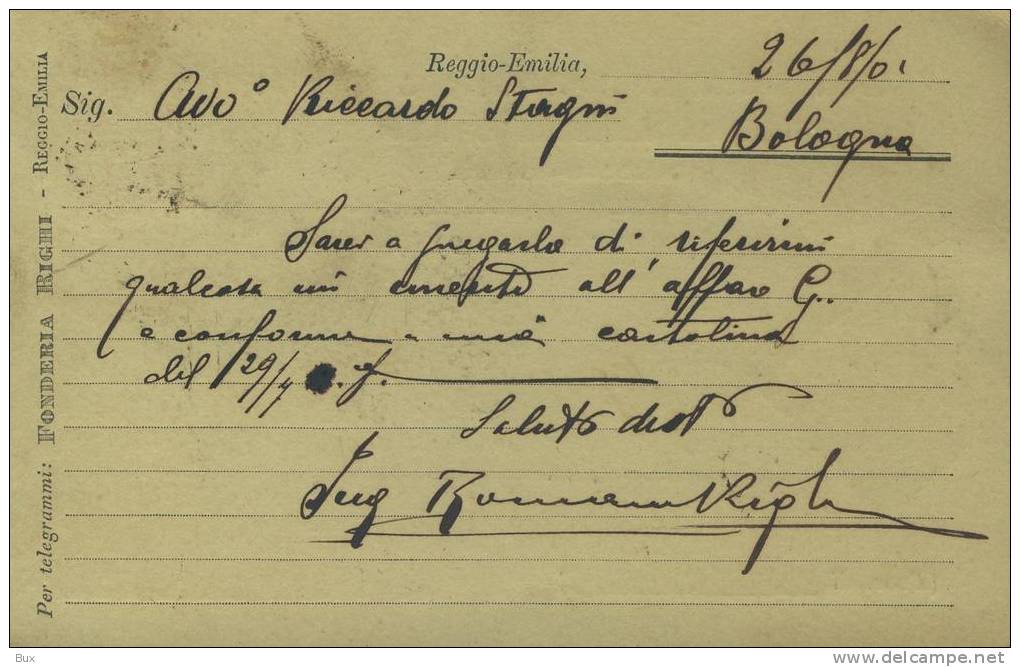 Reggio-Emilia, 26/8/01
Sig. Avvo Riccardo Stagni
Bologna
a pregarla di riferirmi
qualcosa in merito all' affare G.
e conforme a mia cartolina
del 29/7
Saluti
Ing Romano Righi
Per telegrammi: FONDERIA RIGHI - REGGIO-EMILIA
Bux
www.delcampe.net